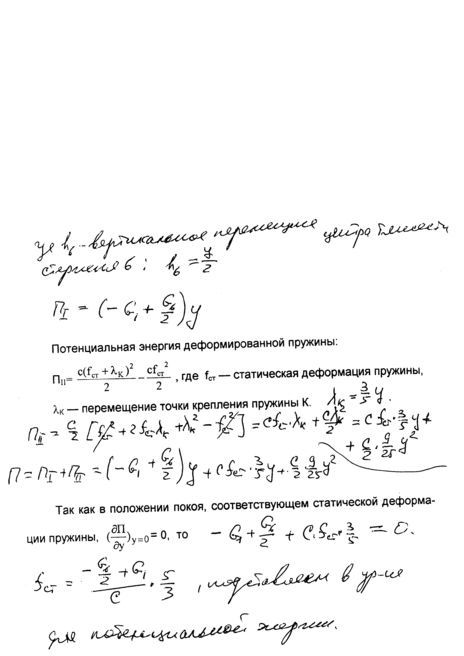 где h₆ - вертикальное перемещение центра тяжести
стержня 6 : h₆ = y/2
П_I = (- G₁ + G₆/2) y
Потенциальная энергия деформированной пружины:
П_II = c(f_ст + λ_K)²/2 - cf_ст²/2 , где f_ст — статическая деформация пружины,
λ_K — перемещение точки крепления пружины K. λ_K = 3/5 y.
П_II = c/2 [f_ст² + 2 f_ст λ_K + λ_K² - f_ст²] = c f_ст · λ_K + cλ_K²/2 = c f_ст · 3/5 y +
+ c/2 · 9/25 y²
П = П_I + П_II = (- G₁ + G₆/2) y + c f_ст · 3/5 y + c/2 · 9/25 y²
Так как в положении покоя, соответствующем статической деформа-
ции пружины, (∂П/∂y)_y=0 = 0, то - G₁ + G₆/2 + C · f_ст · 3/5 = 0.
f_ст = (- G₆/2 + G₁)/C · 5/3 , подставляем в ур-ие
для потенциальной энергии.